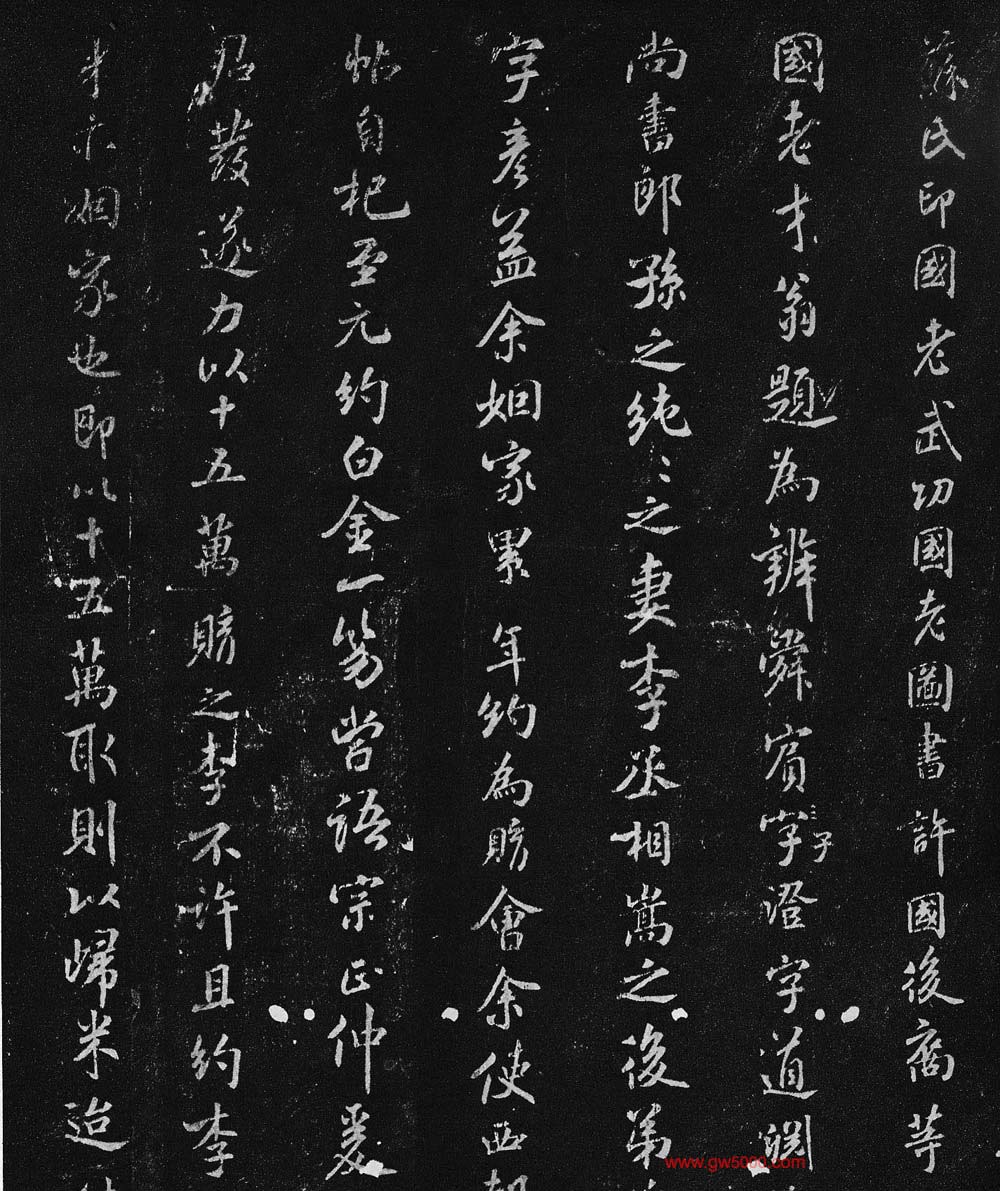 蘇氏印國老武功國老圖書許國後裔等
國老才翁題為辨舜賓字子澄字道淵
尚書郎孫之純〻之妻李丞相嵩之後弟
字彥益余姻家累年約為購會余使西
帖自杞至元約白金一笏嘗語宗正仲爰
君發遂力以十五萬購之李不許且約李
才亦姻家也即以十五萬取則以歸米迨
www.gw5000.com